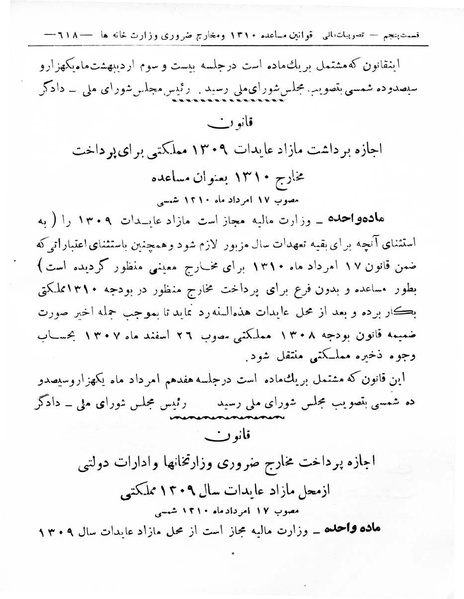 قسمت پنجم — تصویبات مالی قوانین مساعده ۱۳۱۰ ومخارج ضروری وزارت خانه ها —۶۱۸—
اینقانون که مشتمل بریك ماده است درجلسه بیست و سوم اردیبهشت ماه یکهزارو
سیصدوده شمسی بتصویب مجلس شورای ملی رسید . رئیس مجلس شورای ملی ــ دادگر
قانون
اجازه برداشت مازاد عایدات ۱۳۰۹ مملکتی برای پرداخت
مخارج ۱۳۱۰ بعنوان مساعده
مصوب ۱۷ امرداد ماه ۱۳۱۰ شمسی
ماده واحده ــ وزارت مالیه مجاز است مازاد عایدات ۱۳۰۹ را ( به
استثنای آنچه برای بقیه تعهدات سال مزبور لازم شود و همچنین باستثنای اعتباراتی که
ضمن قانون ۱۷ امرداد ماه ۱۳۱۰ برای مخارج معینی منظور گردیده است )
بطور مساعده و بدون فرع برای پرداخت مخارج منظور در بودجه ۱۳۱۰ مملکتی
بکار برده و بعد از محل عایدات هذه السنه رد نماید تا بموجب جمله اخیر صورت
ضمیمه قانون بودجه ۱۳۰۸ مملکتی مصوب ۲۶ اسفند ماه ۱۳۰۷ بحساب
وجوه ذخیره مملکتی منتقل شود .
این قانون که مشتمل بریك ماده است درجلسه هفدهم امرداد ماه یکهزاروسیصدو
ده شمسی بتصویب مجلس شورای ملی رسید رئیس مجلس شورای ملی ــ دادگر
قانون
اجازه پرداخت مخارج ضروری وزارتخانها وادارات دولتی
ازمحل مازاد عایدات سال ۱۳۰۹ مملکتی
مصوب ۱۷ امرداد ماه ۱۳۱۰ شمسی
ماده واحده ــ وزارت مالیه مجاز است از محل مازاد عایدات سال ۱۳۰۹